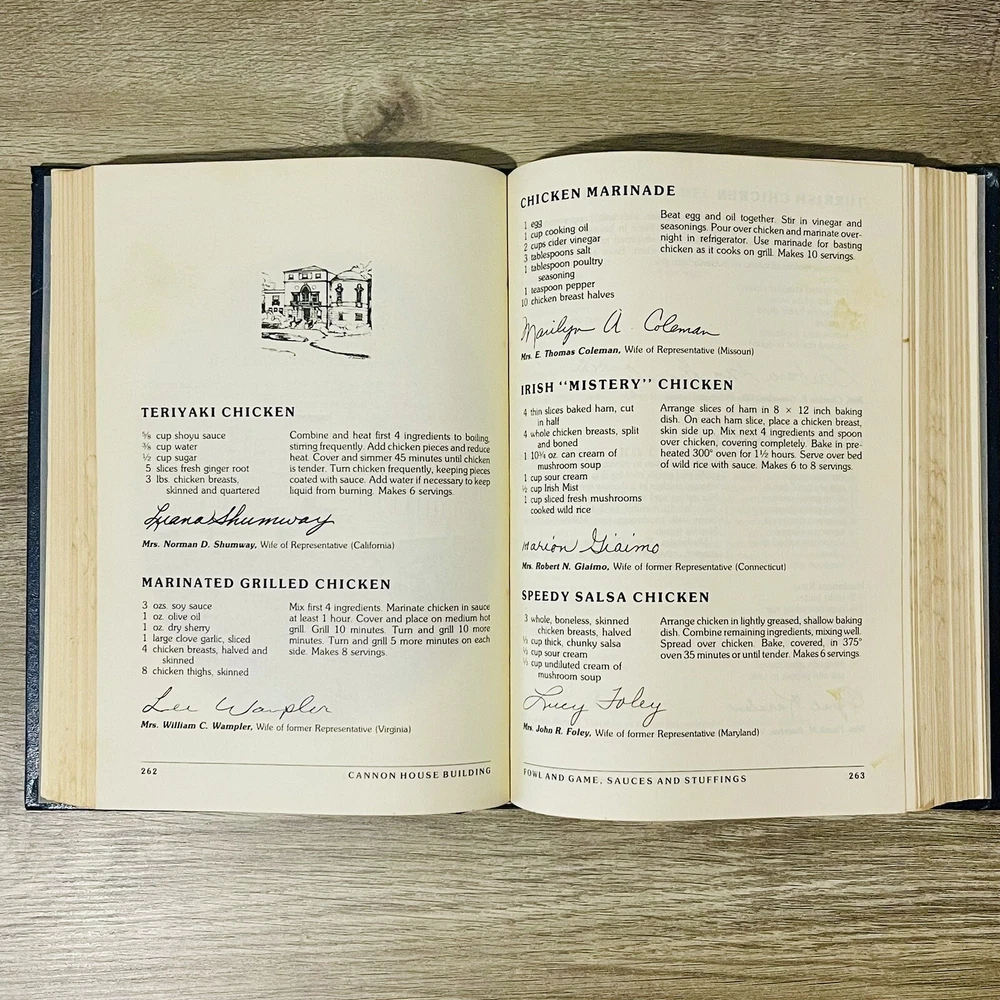 TERIYAKI CHICKEN
⅝ cup shoyu sauce
⅜ cup water
½ cup sugar
5 slices fresh ginger root
3 lbs. chicken breasts,
skinned and quartered
Combine and heat first 4 ingredients to boiling,
stirring frequently. Add chicken pieces and reduce
heat. Cover and simmer 45 minutes until chicken
is tender. Turn chicken frequently, keeping pieces
coated with sauce. Add water if necessary to keep
liquid from burning. Makes 6 servings.
Luana Shumway
Mrs. Norman D. Shumway, Wife of Representative (California)
MARINATED GRILLED CHICKEN
3 ozs. soy sauce
1 oz. olive oil
1 oz. dry sherry
1 large clove garlic, sliced
4 chicken breasts, halved and
skinned
8 chicken thighs, skinned
Mix first 4 ingredients. Marinate chicken in sauce
at least 1 hour. Cover and place on medium hot
grill. Grill 10 minutes. Turn and grill 10 more
minutes. Turn and grill 5 more minutes on each
side. Makes 8 servings.
Lee Wampler
Mrs. William C. Wampler, Wife of former Representative (Virginia)
262
CANNON HOUSE BUILDING
CHICKEN MARINADE
1 egg
1 cup cooking oil
2 cups cider vinegar
3 tablespoons salt
1 tablespoon poultry
seasoning
1 teaspoon pepper
10 chicken breast halves
Beat egg and oil together. Stir in vinegar and
seasonings. Pour over chicken and marinate over-
night in refrigerator. Use marinade for basting
chicken as it cooks on grill. Makes 10 servings.
Marilyn A. Coleman
Mrs. E. Thomas Coleman, Wife of Representative (Missouri)
IRISH "MISTERY" CHICKEN
4 thin slices baked ham, cut
in half
4 whole chicken breasts, split
and boned
1 10¾ oz. can cream of
mushroom soup
1 cup sour cream
½ cup Irish Mist
1 cup sliced fresh mushrooms
cooked wild rice
Arrange slices of ham in 8 × 12 inch baking
dish. On each ham slice, place a chicken breast,
skin side up. Mix next 4 ingredients and spoon
over chicken, covering completely. Bake in pre-
heated 300° oven for 1½ hours. Serve over bed
of wild rice with sauce. Makes 6 to 8 servings.
Marion Giaimo
Mrs. Robert N. Giaimo, Wife of former Representative (Connecticut)
SPEEDY SALSA CHICKEN
3 whole, boneless, skinned
chicken breasts, halved
cup thick, chunky salsa
cup sour cream
cup undiluted cream of
mushroom soup
Arrange chicken in lightly greased, shallow baking
dish. Combine remaining ingredients, mixing well.
Spread over chicken. Bake, covered, in 375°
oven 35 minutes or until tender. Makes 6 servings.
Lucy Foley
Mrs. John R. Foley, Wife of former Representative (Maryland)
FOWL AND GAME, SAUCES AND STUFFINGS
263